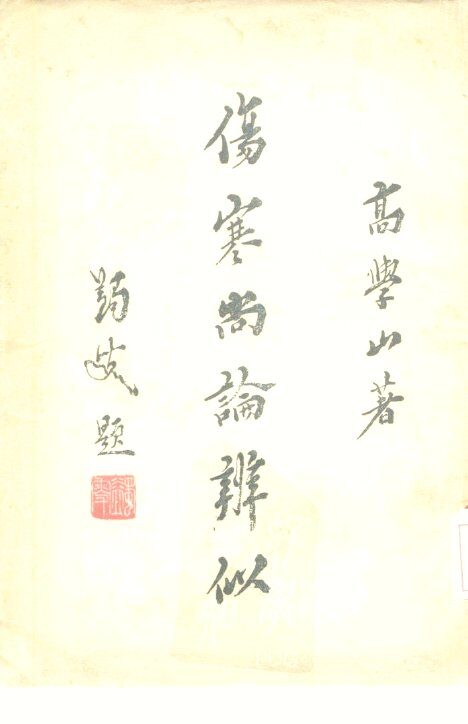 高學山著
傷寒尚論辨似
題